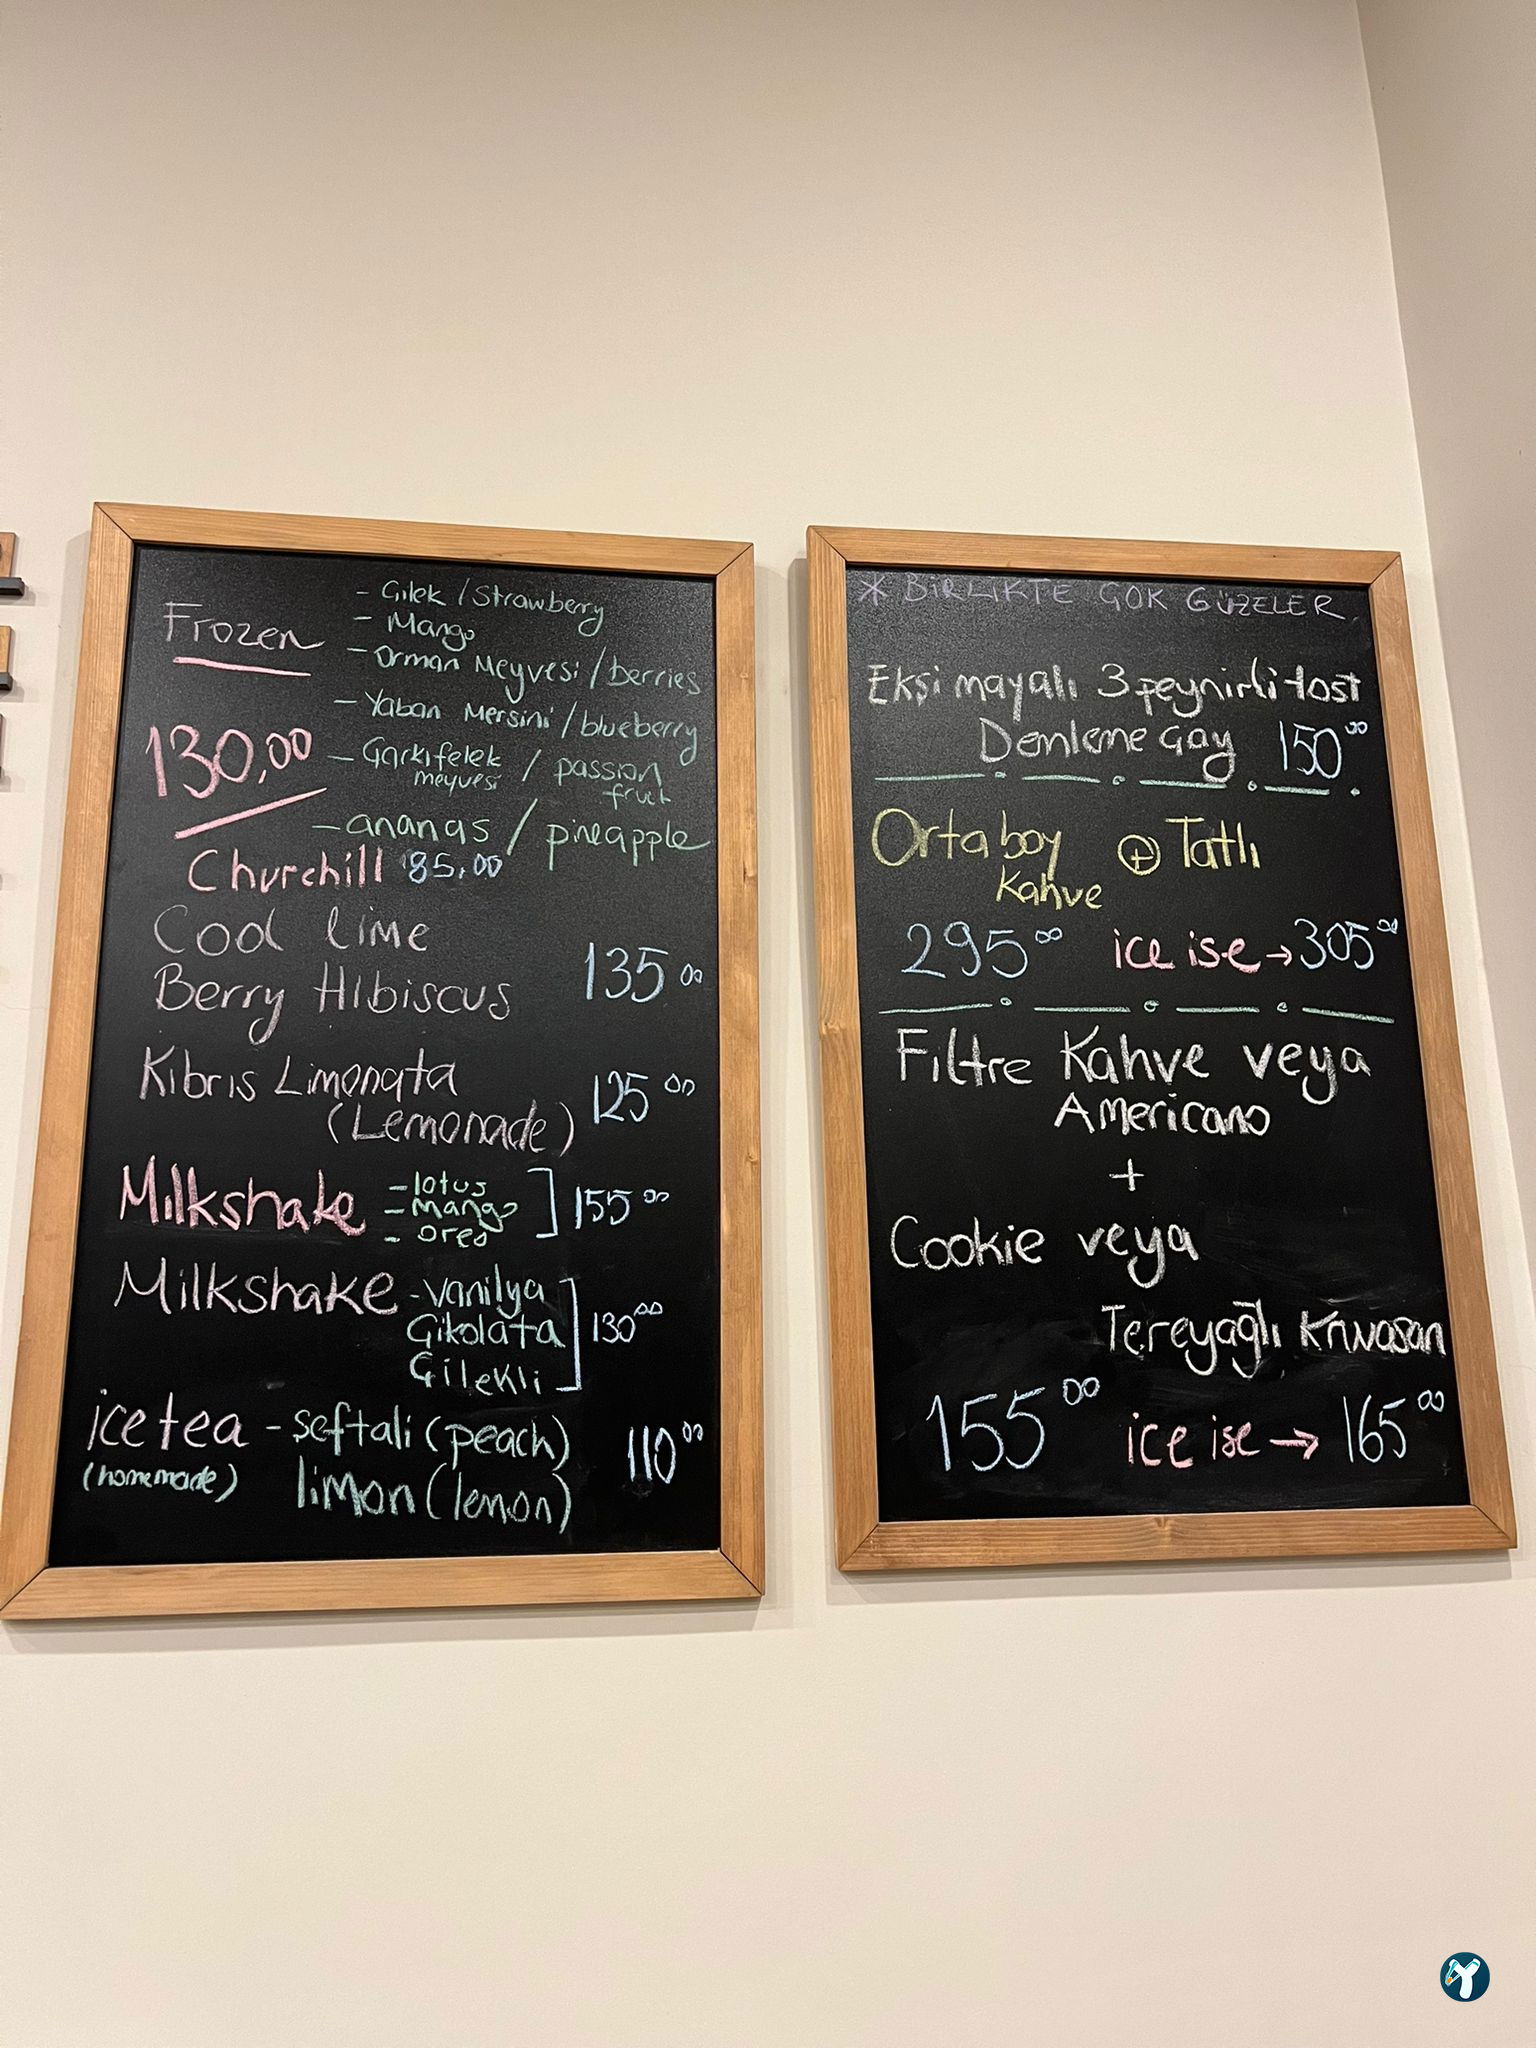 Frozen
130,00
- Çilek / Strawberry
- Mango
- Orman Meyvesi / berries
- Yaban Mersini / blueberry
- Çarkıfelek meyvesi / passion fruit
- ananas / pineapple
Churchill 85,00
Cool lime
Berry Hibiscus 135.00
Kıbrıs Limonata
(Lemonade) 125.00
Milkshake - lotus
- mango
- oreo
155.00
Milkshake - vanilya
Çikolata
Çilekli
130.00
ice tea - şeftali (peach) 110.00
(homemade) limon (lemon)
* BİRLİKTE ÇOK GÜZELER
Ekşi mayalı 3 peynirli tost
Demleme Çay 150.00
Orta boy Kahve + Tatlı
295.00 ice ise → 305.00
Filtre Kahve veya
Americano
+
Cookie veya
Tereyağlı Kruvasan
155.00 ice ise → 165.00